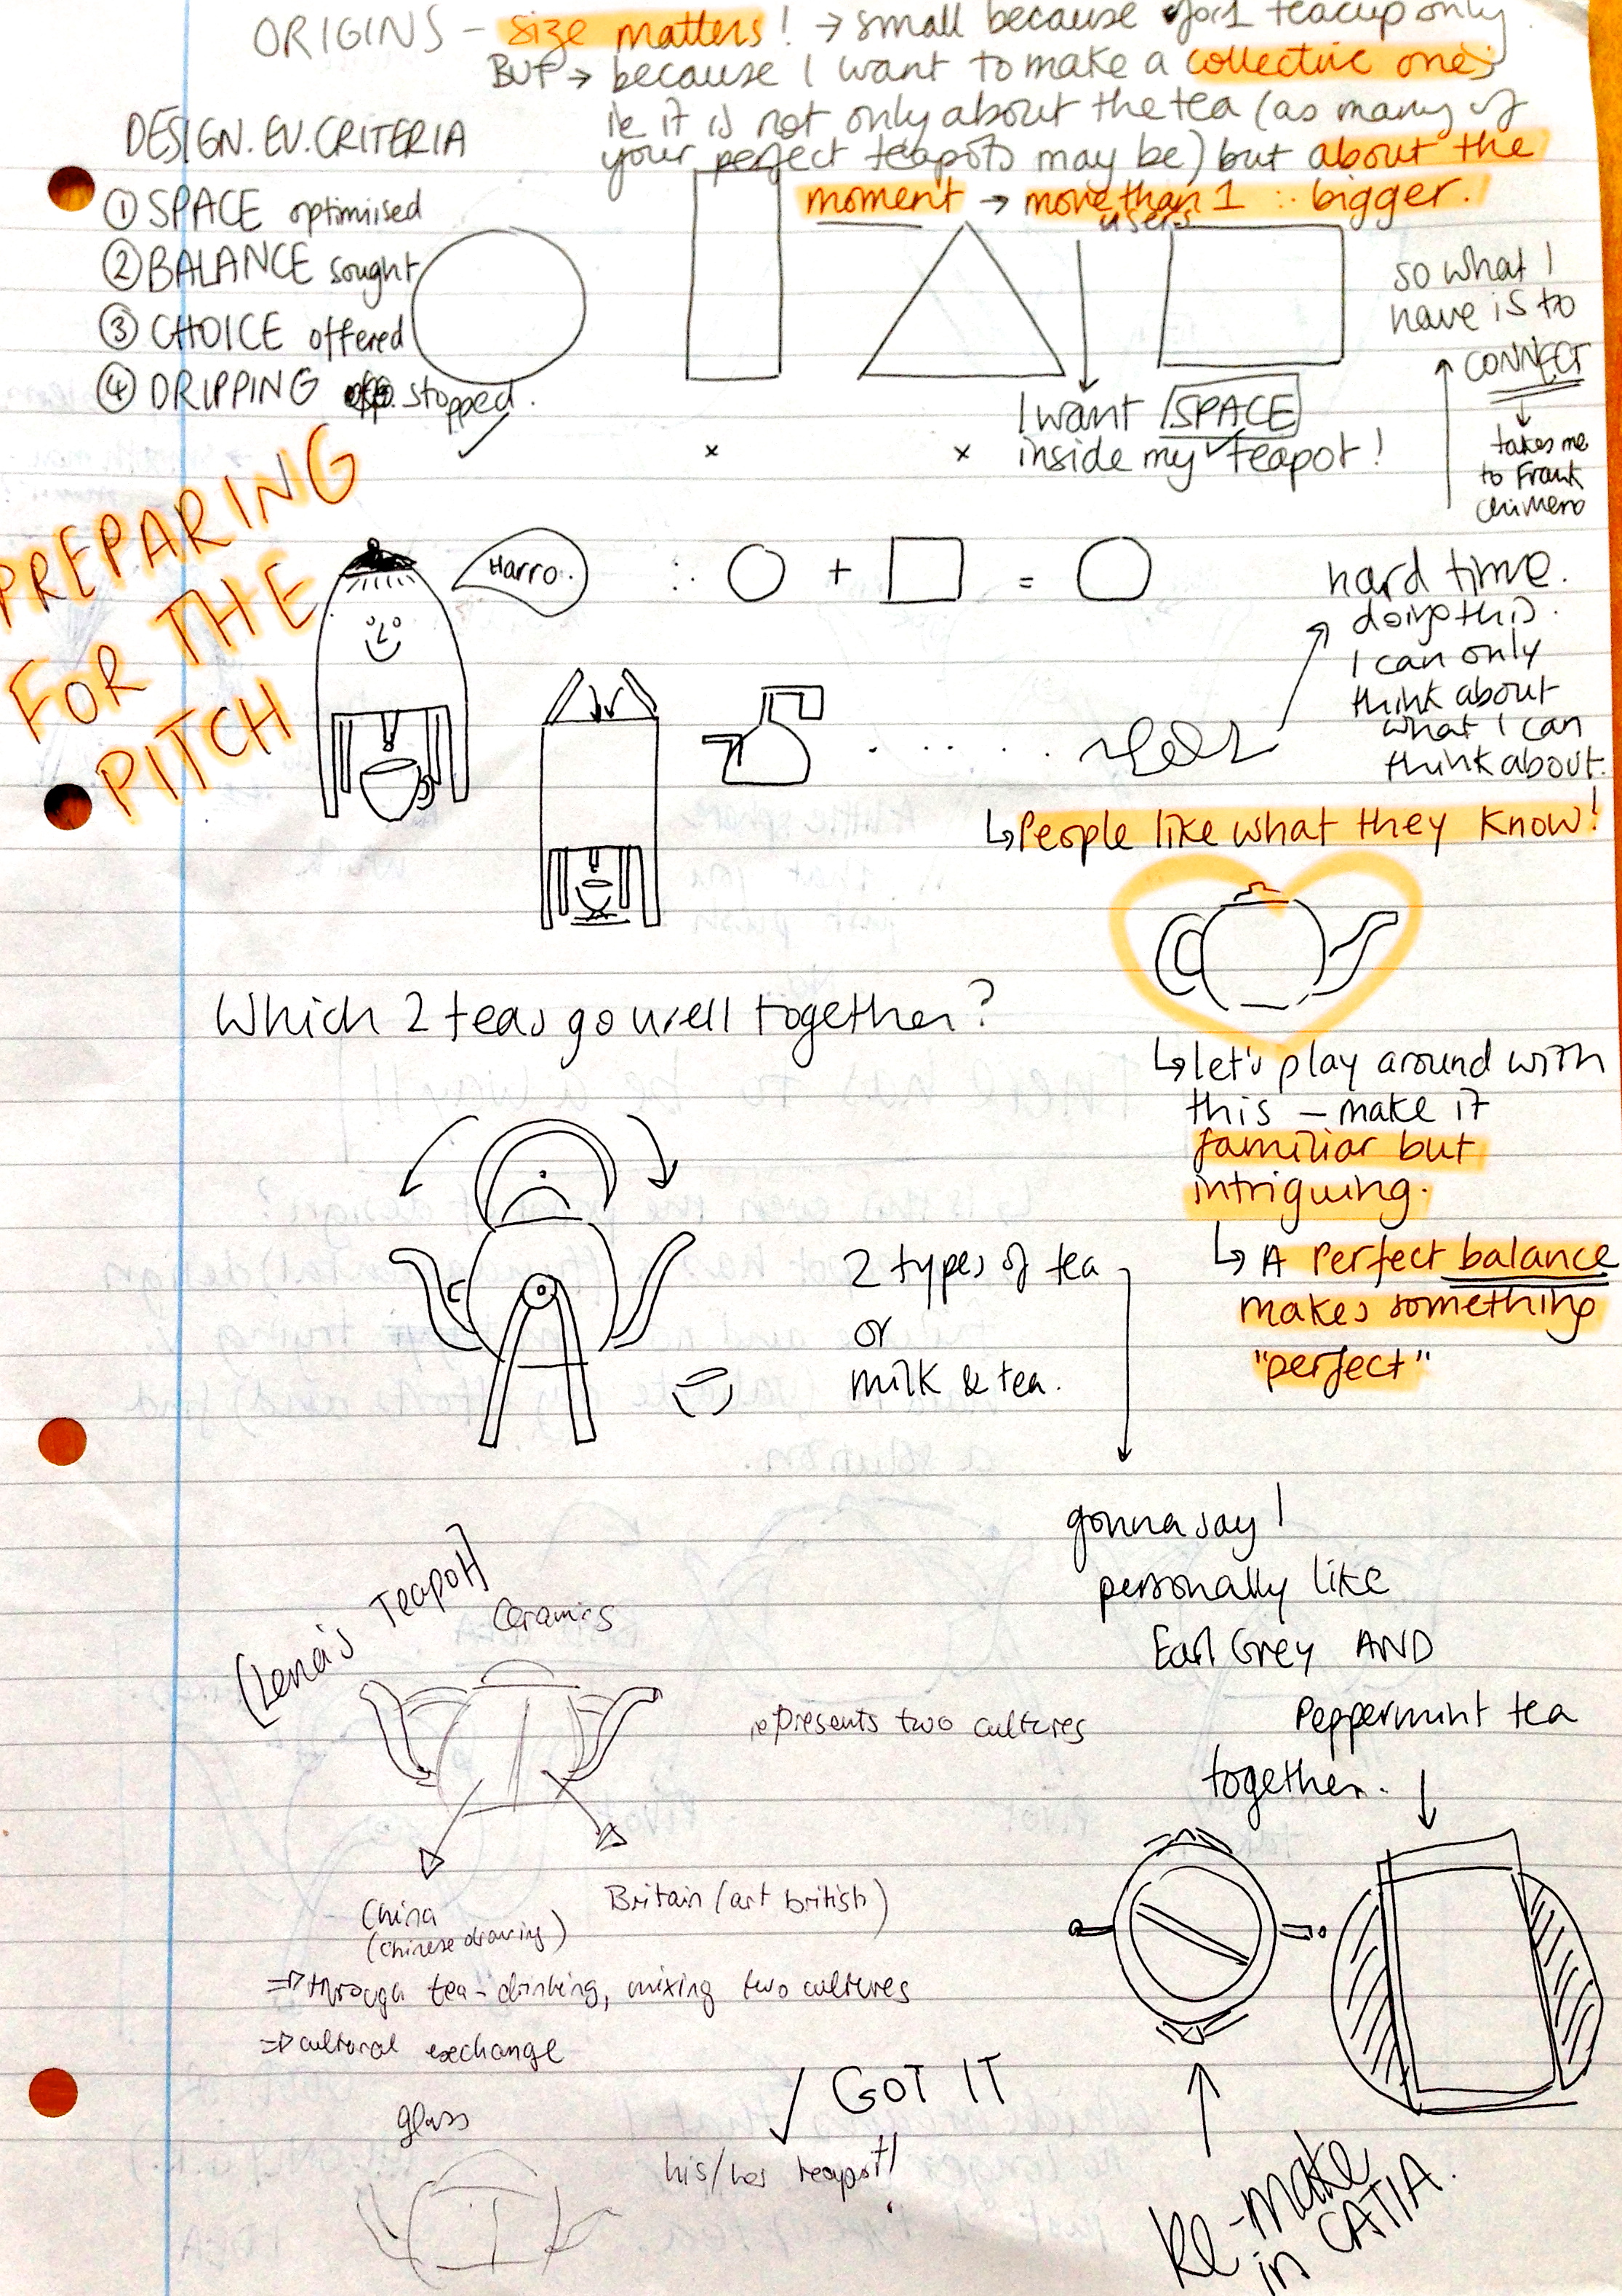 ORIGINS - size matters! → small because for 1 teacup only.
BUT → because I want to make a collective one;
ie it is not only about the tea (as many of
your perfect teapots may be) but about the
moment → more than 1 ∴ bigger.
users
DESIGN.EV.CRITERIA
① SPACE optimised
② BALANCE sought
③ CHOICE offered
④ DRIPPING stopped.
I want SPACE
inside my teapot!
so what I
have is to
CONNECT
takes me
to Frank
Chimero
PREPARING
FOR THE
PITCH
Harro.
∴ + =
hard time.
doing this.
I can only
think about
what I can
think about.
↳ People like what they know!
Which 2 teas go well together?
↳ let's play around with
this – make it
familiar but
intriguing.
↳ A perfect balance
makes something
"perfect"
2 types of tea
or
milk & tea.
gonna say I
personally like
Earl Grey AND
Peppermint tea
together.
(Lena's Teapot)
Ceramics
represents two cultures
China
(chinese drawing)
Britain (art british)
⇒ through tea-drinking, mixing two cultures
⇒ cultural exchange
GOT IT
glass
his/her teapot!
Re-make
in CATIA.